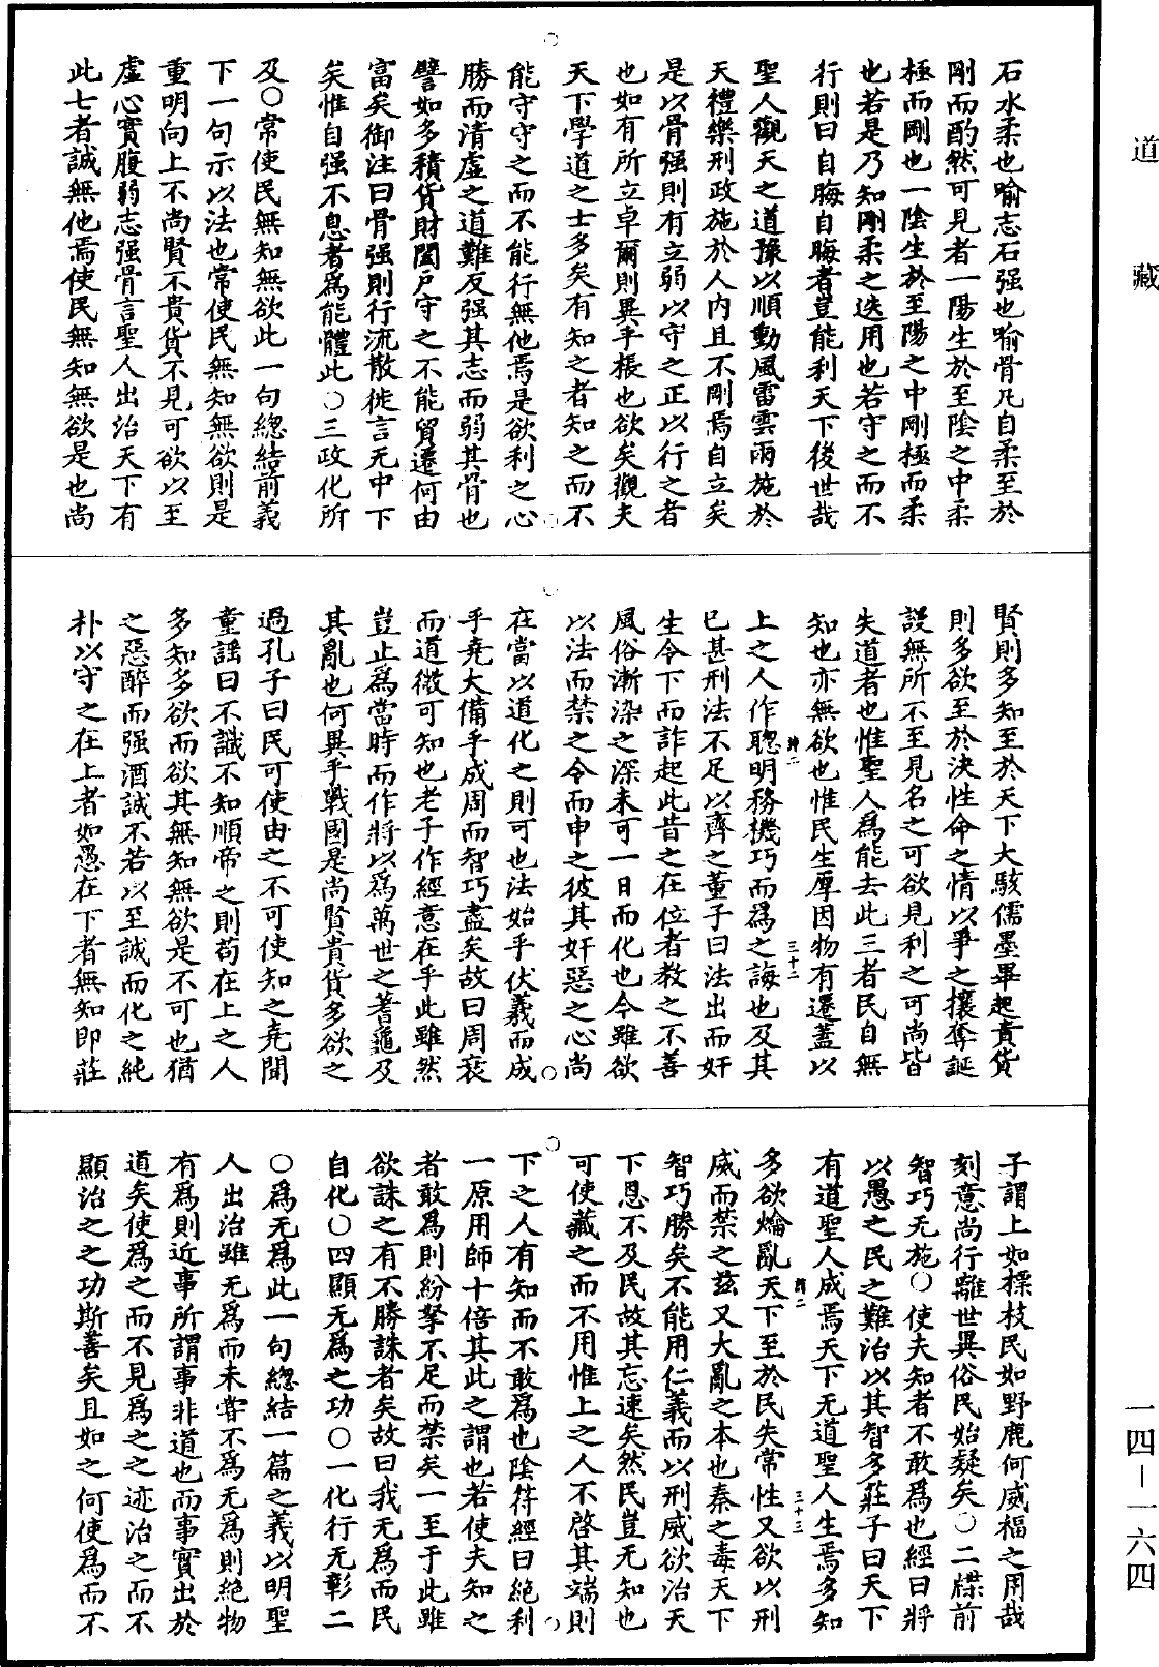 道藏
石水柔也喻志石强也喻骨凡自柔至於
剛而酌然可見者一陽生於至陰之中柔
極而剛也一陰生於至陽之中剛極而柔
也若是乃知剛柔之迭用也若守之而不
行則曰自晦自晦者豈能利天下後世哉
聖人觀天之道豫以順動風雷雲雨施於
天禮樂刑政施於人内且不剛焉自立矣
是以骨强則有立弱以守之正以行之者
也如有所立卓爾則異乎棖也欲矣觀夫
天下學道之士多矣有知之者知之而不
能守守之而不能行無他焉是欲利之心
勝而清虛之道難反强其志而弱其骨也
譬如多積貨財闔戶守之不能貿遷何由
富矣御注曰骨强則行流散徙言无中下
矣惟自强不息者爲能體此○三政化所
及○常使民無知無欲此一句緫結前義
下一句示以法也常使民無知無欲則是
重明向上不尚賢不貴貨不見可欲以至
虛心實腹弱志强骨言聖人出治天下有
此七者誠無他焉使民無知無欲是也尚
賢則多知至於天下大駭儒墨畢起貴貨
則多欲至於決性命之情以爭之攘奪誕
謾無所不至見名之可欲見利之可尚皆
失道者也惟聖人爲能去此三者民自無
知也亦無欲也惟民生厚因物有遷蓋以
上之人作聦明務機巧而爲之誨也及其
已甚刑法不足以齊之董子曰法出而奸
生令下而詐起此昔之在位者教之不善
風俗漸染之深未可一日而化也今雖欲
以法而禁之令而申之彼其奸惡之心尚
在當以道化之則可也法始乎伏羲而成
乎堯大備乎成周而智巧盡矣故曰周衰
而道微可知也老子作經意在乎此雖然
豈止爲當時而作將以爲萬世之蓍龜及
其亂也何異乎戰國是尚賢貴貨多欲之
過孔子曰民可使由之不可使知之堯聞
童謡曰不識不知順帝之則苟在上之人
多知多欲而欲其無知無欲是不可也猶
之惡醉而强酒誠不若以至誠而化之純
朴以守之在上者如愚在下者無知即莊
子謂上如標枝民如野鹿何威福之用哉
刻意尚行離世異俗民始疑矣○二牒前
智巧无施○使夫知者不敢爲也經曰將
以愚之民之難治以其智多莊子曰天下
有道聖人成焉天下无道聖人生焉多知
多欲爚亂天下至於民失常性又欲以刑
威而禁之兹又大亂之本也秦之毒天下
智巧勝矣不能用仁義而以刑威欲治天
下恩不及民故其忘速矣然民豈无知也
可使藏之而不用惟上之人不啓其端則
下之人有知而不敢爲也陰符經曰絶利
一原用師十倍其此之謂也若使夫知之
者敢爲則紛拏不足而禁矣一至于此雖
欲誅之有不勝誅者矣故曰我无爲而民
自化○四顯无爲之功○一化行无彰二
○爲无爲此一句緫結一篇之義以明聖
人出治雖无爲而未嘗不爲无爲則絶物
有爲則近事所謂事非道也而事實出於
道矣使爲之而不見爲之之迹治之而不
顯治之之功斯善矣且如之何使爲而不
三十二
三十三
一四—一六四